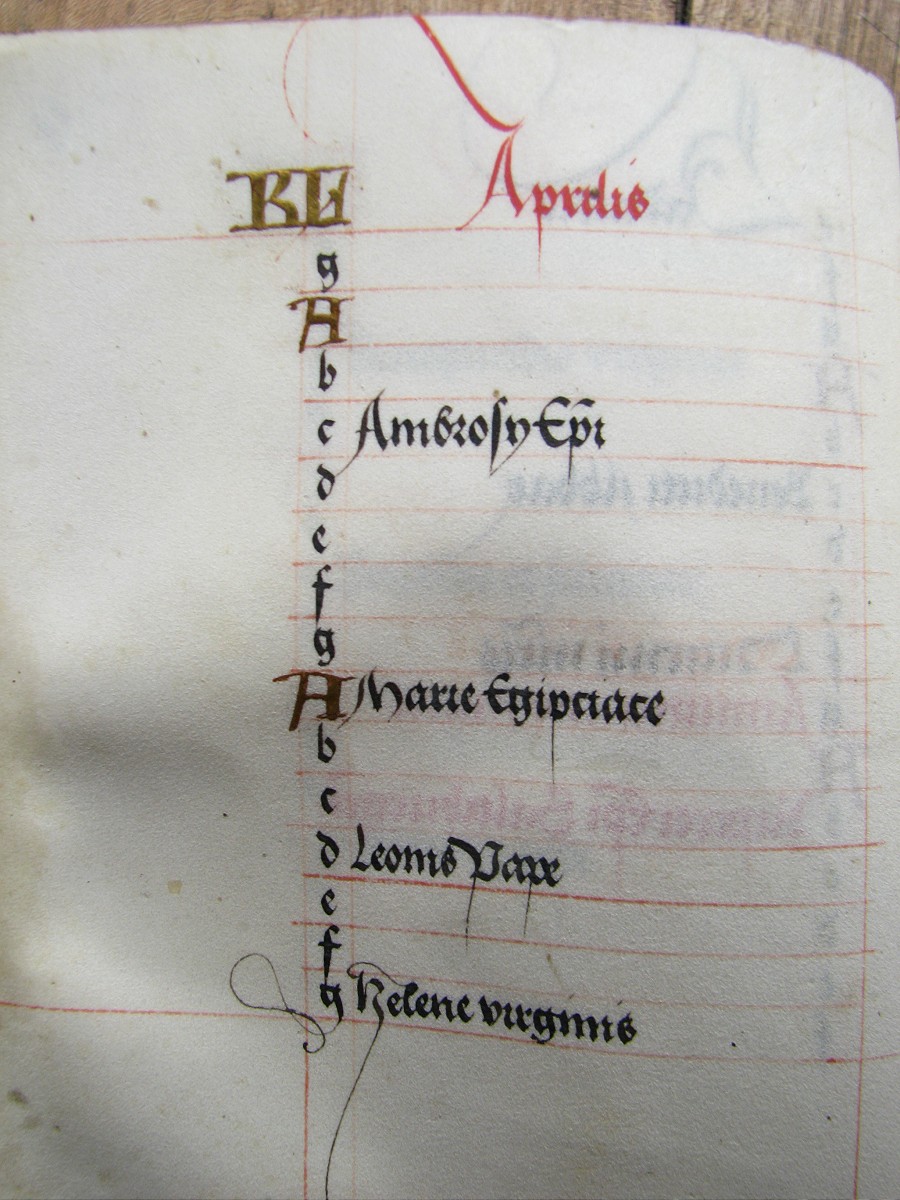 KL Aprilis
g
A
b
c Ambrosy Ep̄i
d
e
f
g
A Marie Egipciace
b
c
d Leonis Pape
e
f
g Helene virginis